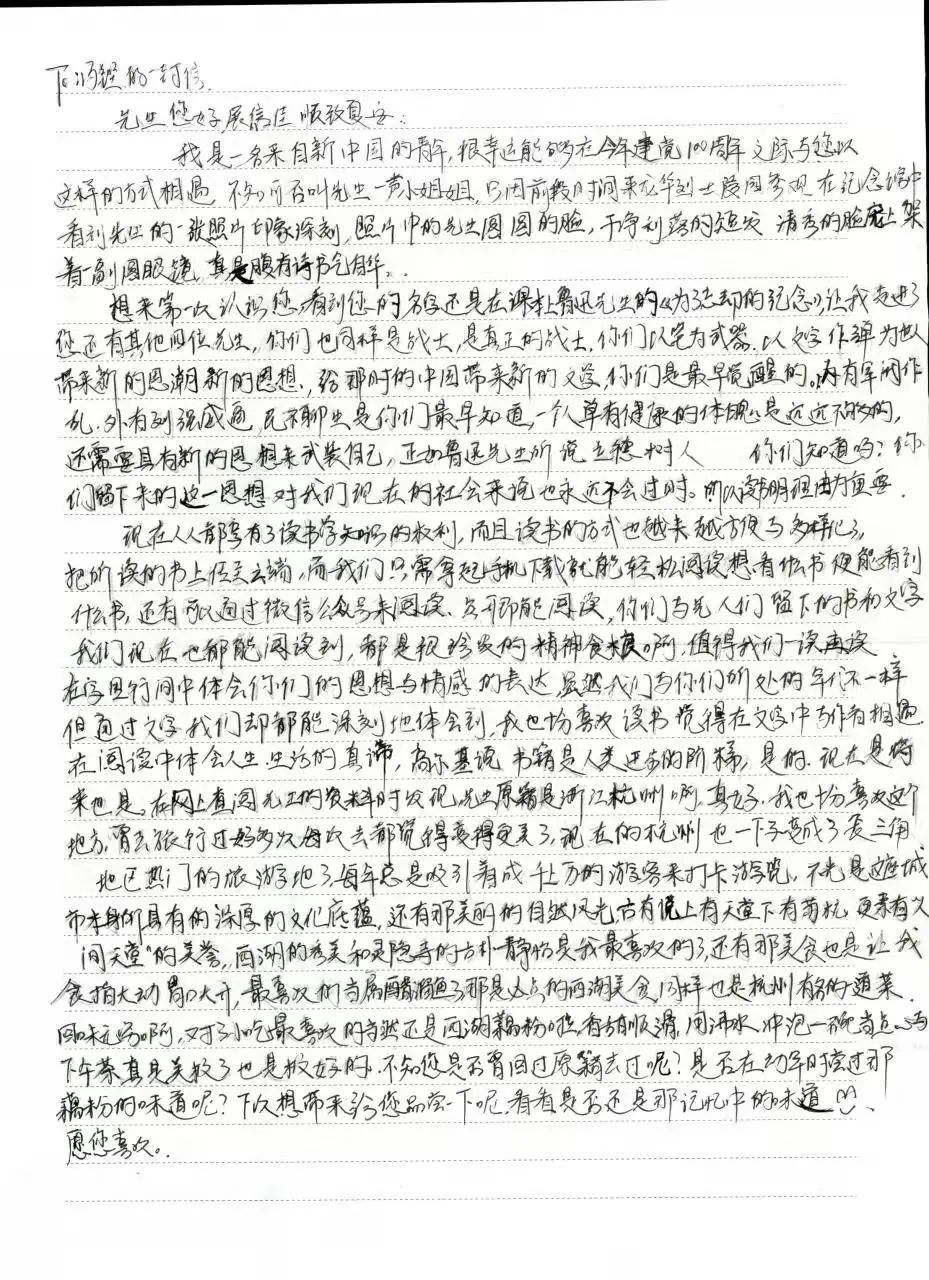 To冯铿的一封信.
先生您好展信佳顺致夏安:
我是一名来自新中国的青年,很幸运能够在今年建党100周年之际与您以
这样的方式相遇 不知可否叫先生一声小姐姐,只因前段时间来龙华烈士陵园参观 在纪念馆中
看到先生的一张照片印象深刻,照片中的先生圆圆的脸,干净利落的短发 清秀的脸庞上架
着一副圆眼镜 真是腹有诗书气自华。
想来第一次认识您,看到您的名字还是在课本上鲁迅先生的《为了忘却的纪念》,让我走进了
您还有其他四位先生,你们也同样是战士,是真正的战士,你们以笔为武器.以文字作弹为世人
带来新的思潮新的思想,给那时的中国带来新的文学,你们是最早觉醒的。内有军阀作
乱,外有列强威逼,民不聊生是你们最早知道,一个人单有健康的体魄是远远不够的,
还需要具有新的思想来武装自己,正如鲁迅先生所说 立德树人 你们知道吗?你
们留下来的这一思想对我们现在的社会来说也永远不会过时。所以读书明理由为重要.
现在人人都享有了读书学知识的权利,而且读书的方式也越来越方便与多样化了,
把所读的书上传至云端,而我们只需拿起手机下载就能轻松阅读想看什么书便能看到
什么书,还有可以通过微信公众号来阅读.点开即能阅读,你们与先人们留下的书和文字
我们现在也都能阅读到,都是很珍贵的精神食粮啊,值得我们一读再读
在字里行间中体会你们的思想与情感的表达,虽然我们与你们所处的年代不一样
但通过文字我们却都能深刻地体会到,我也十分喜欢读书 觉得在文字中与作者相遇
在阅读中体会人生 生活的真谛,高尔基说 书籍是人类进步的阶梯,是的.现在是将
来也是。在网上查阅先生的资料时发现,先生原籍是浙江杭州啊,真好.我也十分喜欢这个
地方,曾去旅行过好多次每次去都觉得变得更美了,现在的杭州也一下子变成了长三角
地区热门的旅游地了,每年总是吸引着成千上万的游客来打卡游览,不光是这座城
市本身所具有的深厚的文化底蕴,还有那美丽的自然风光古有说上有天堂下有苏杭,更素有"人
间天堂"的美誉,西湖的秀美和灵隐寺的古朴静怡是我最喜欢的了,还有那美食也是让我
食指大动胃口大开,最喜欢的当属醋溜鱼了那是必点的西湖美食,同样也是杭州有名的一道菜.
回味无穷啊,对于小吃最喜欢的当然还是西湖藕粉啦,香甜顺滑,用沸水冲泡一碗当点心与
下午茶真是美极了也是极好的.不知您是否曾回过原籍去过呢?是否在幼年时尝过那
藕粉的味道呢?下次想带来给您品尝一下呢,看看是否还是那记忆中的味道.
愿您喜欢。